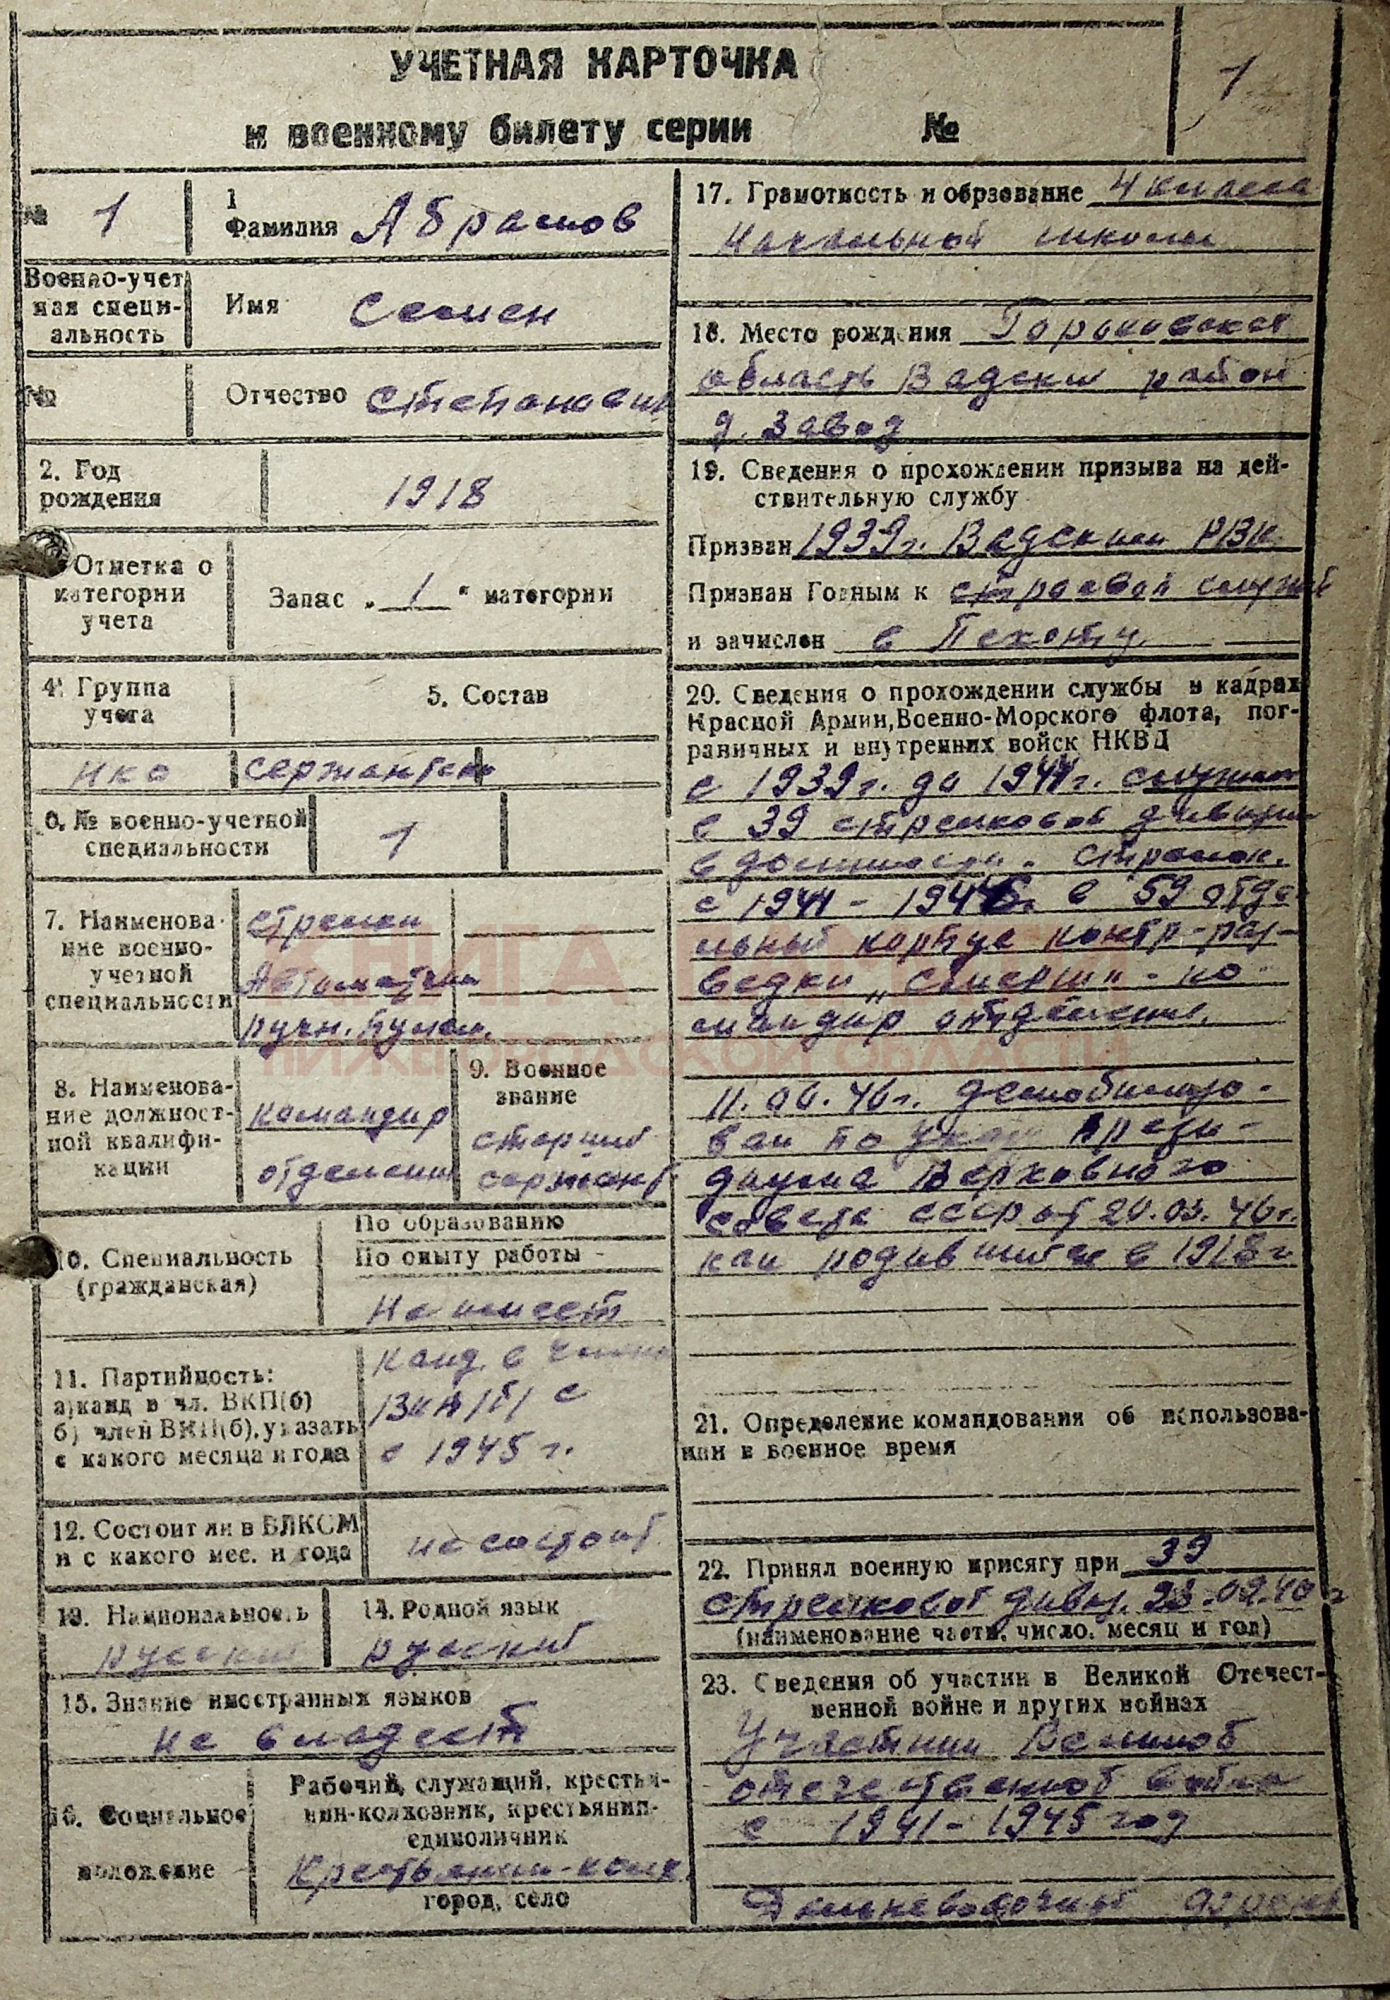 УЧЕТНАЯ КАРТОЧКА
к военному билету серии №
1
№ 1
1
Фамилия Абрамов
Военно-учет
ная специ-
альность
Имя Семен
№
Отчество Степанович
2. Год
рождения
1918
Отметка о
категории
учета
Запас „ 1 “ категории
4. Группа
учета
5. Состав
нка
сержантск
6. № военно-учетной
специальности
1
7. Наименова-
ние военно-
учетной
специальности
стрелки
Автоматчик
ручн. пулем.
8. Наименова-
ние должност-
ной квалифи-
кации
командир
отделения
9. Военное
звание
старший
сержант
10. Специальность
(гражданская)
По образованию
По опыту работы -
Не имеет
11. Партийность:
а) канд в чл. ВКП(б)
б) член ВКП(б), указать
с какого месяца и года
канд. в члены
ВКП/б/ с
с 1945 г.
12. Состоит ли в ВЛКСМ
и с какого мес. и года
не состоит
13. Национальность
русский
14. Родной язык
русский
15. Знание иностранных языков
не владеет
16. Социальное
положение
Рабочий, служащий, крестья-
нин-колхозник, крестьянин-
единоличник
Крестьянин-колх.
город, село
17. Грамотность и обрзование 4 класса
Начальной школы
18. Место рождения Горьковская
область Вадский район
д. Завод
19. Сведения о прохождении призыва на дей-
ствительную службу
Призван 1939 г. Вадским РВК
Признан Годным к строевой службе
и зачислен в Пехоту
20. Сведения о прохождении службы в кадрах
Красной Армии, Военно-Морского флота, пог-
раничных и внутренних войск НКВД
с 1939 г. до 1941 г. служил
в 39 стрелковой дивизии
в должности. стрелок.
с 1941 - 1946 г. в 59 отде-
льный корпус контр-раз-
ведки „Смерш" - ко-
мандир отделения.
11.06.46 г. демобилизо-
ван по указу Прези-
диума Верховного
совета ссср от 20.03.46 г.
как родившийся в 1918 г
21. Определение командования об использова-
нии в военное время
22. Принял военную присягу при 39
стрелковой дивиз. 23.02.40 г
(наименование части, число, месяц и год)
23. Сведения об участии в Великой Отечест-
венной войне и других войнах
Участник Великой
отечественной войны
с 1941 - 1945 год
Дальневосточный
КНИГА ПАМЯТИ
НИЖЕГОРОДСКОЙ ОБЛАСТИ